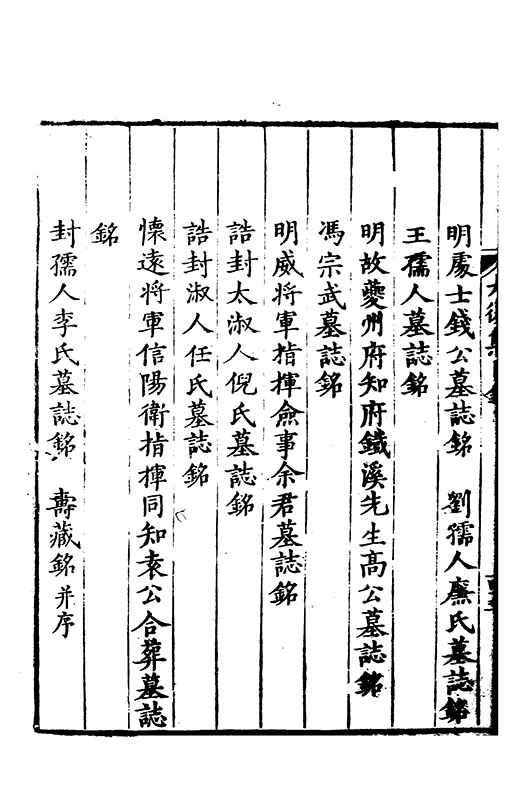 明處士錢公墓誌銘　劉孺人廉氏墓誌銘
王孺人墓誌銘
明故夔州府知府鐵溪先生髙公墓誌銘
馮宗武墓誌銘
明威將軍指揮僉事余君墓誌銘
誥封太淑人倪氏墓誌銘
誥封淑人任氏墓誌銘
懷逺將軍信陽衛指揮同知袁公合葬墓誌
銘
封孺人李氏墓誌銘　壽藏銘并序